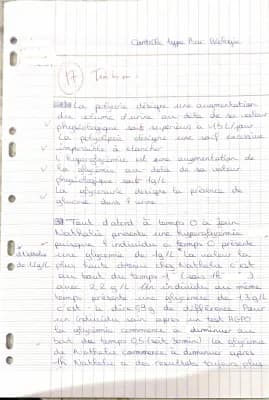 Contrôle type Bac Biologie
17 Très bien.
La polyurie désigne une augmentation
du volume d'urine au delà de sa valeur
physiologique soit supérieur à 1,5 L/jour
La polydipsie désigne une soif excessive
impossible à étancher
L'hyperglycémie est une augmentation de
la glycémie au delà de sa valeur
physiologique soit 1g/L
La glycosurie désigne la présence de
glucose dans l'urine
Tout d'abord à temps 0 à jeun
Nathalie présente une hyperglycémie
puisque l'individu à temps 0 présente
une glycémie de 1g/L la valeur la
plus haute chez Nathalie c'est
au bout du temps 1 (soit 1h)
avec 2,2 g/L un individu au même
temps présente une glycémie de 1,3 g/L
c'est à dire de différence Pour
un individu sain après un test HGPO
la glycémie commence à diminuer au
bout du temps 0,5 (soit 30min) la glycémie
de Nathalie commence à diminuer après
1h Nathalie a des résultats toujours plus